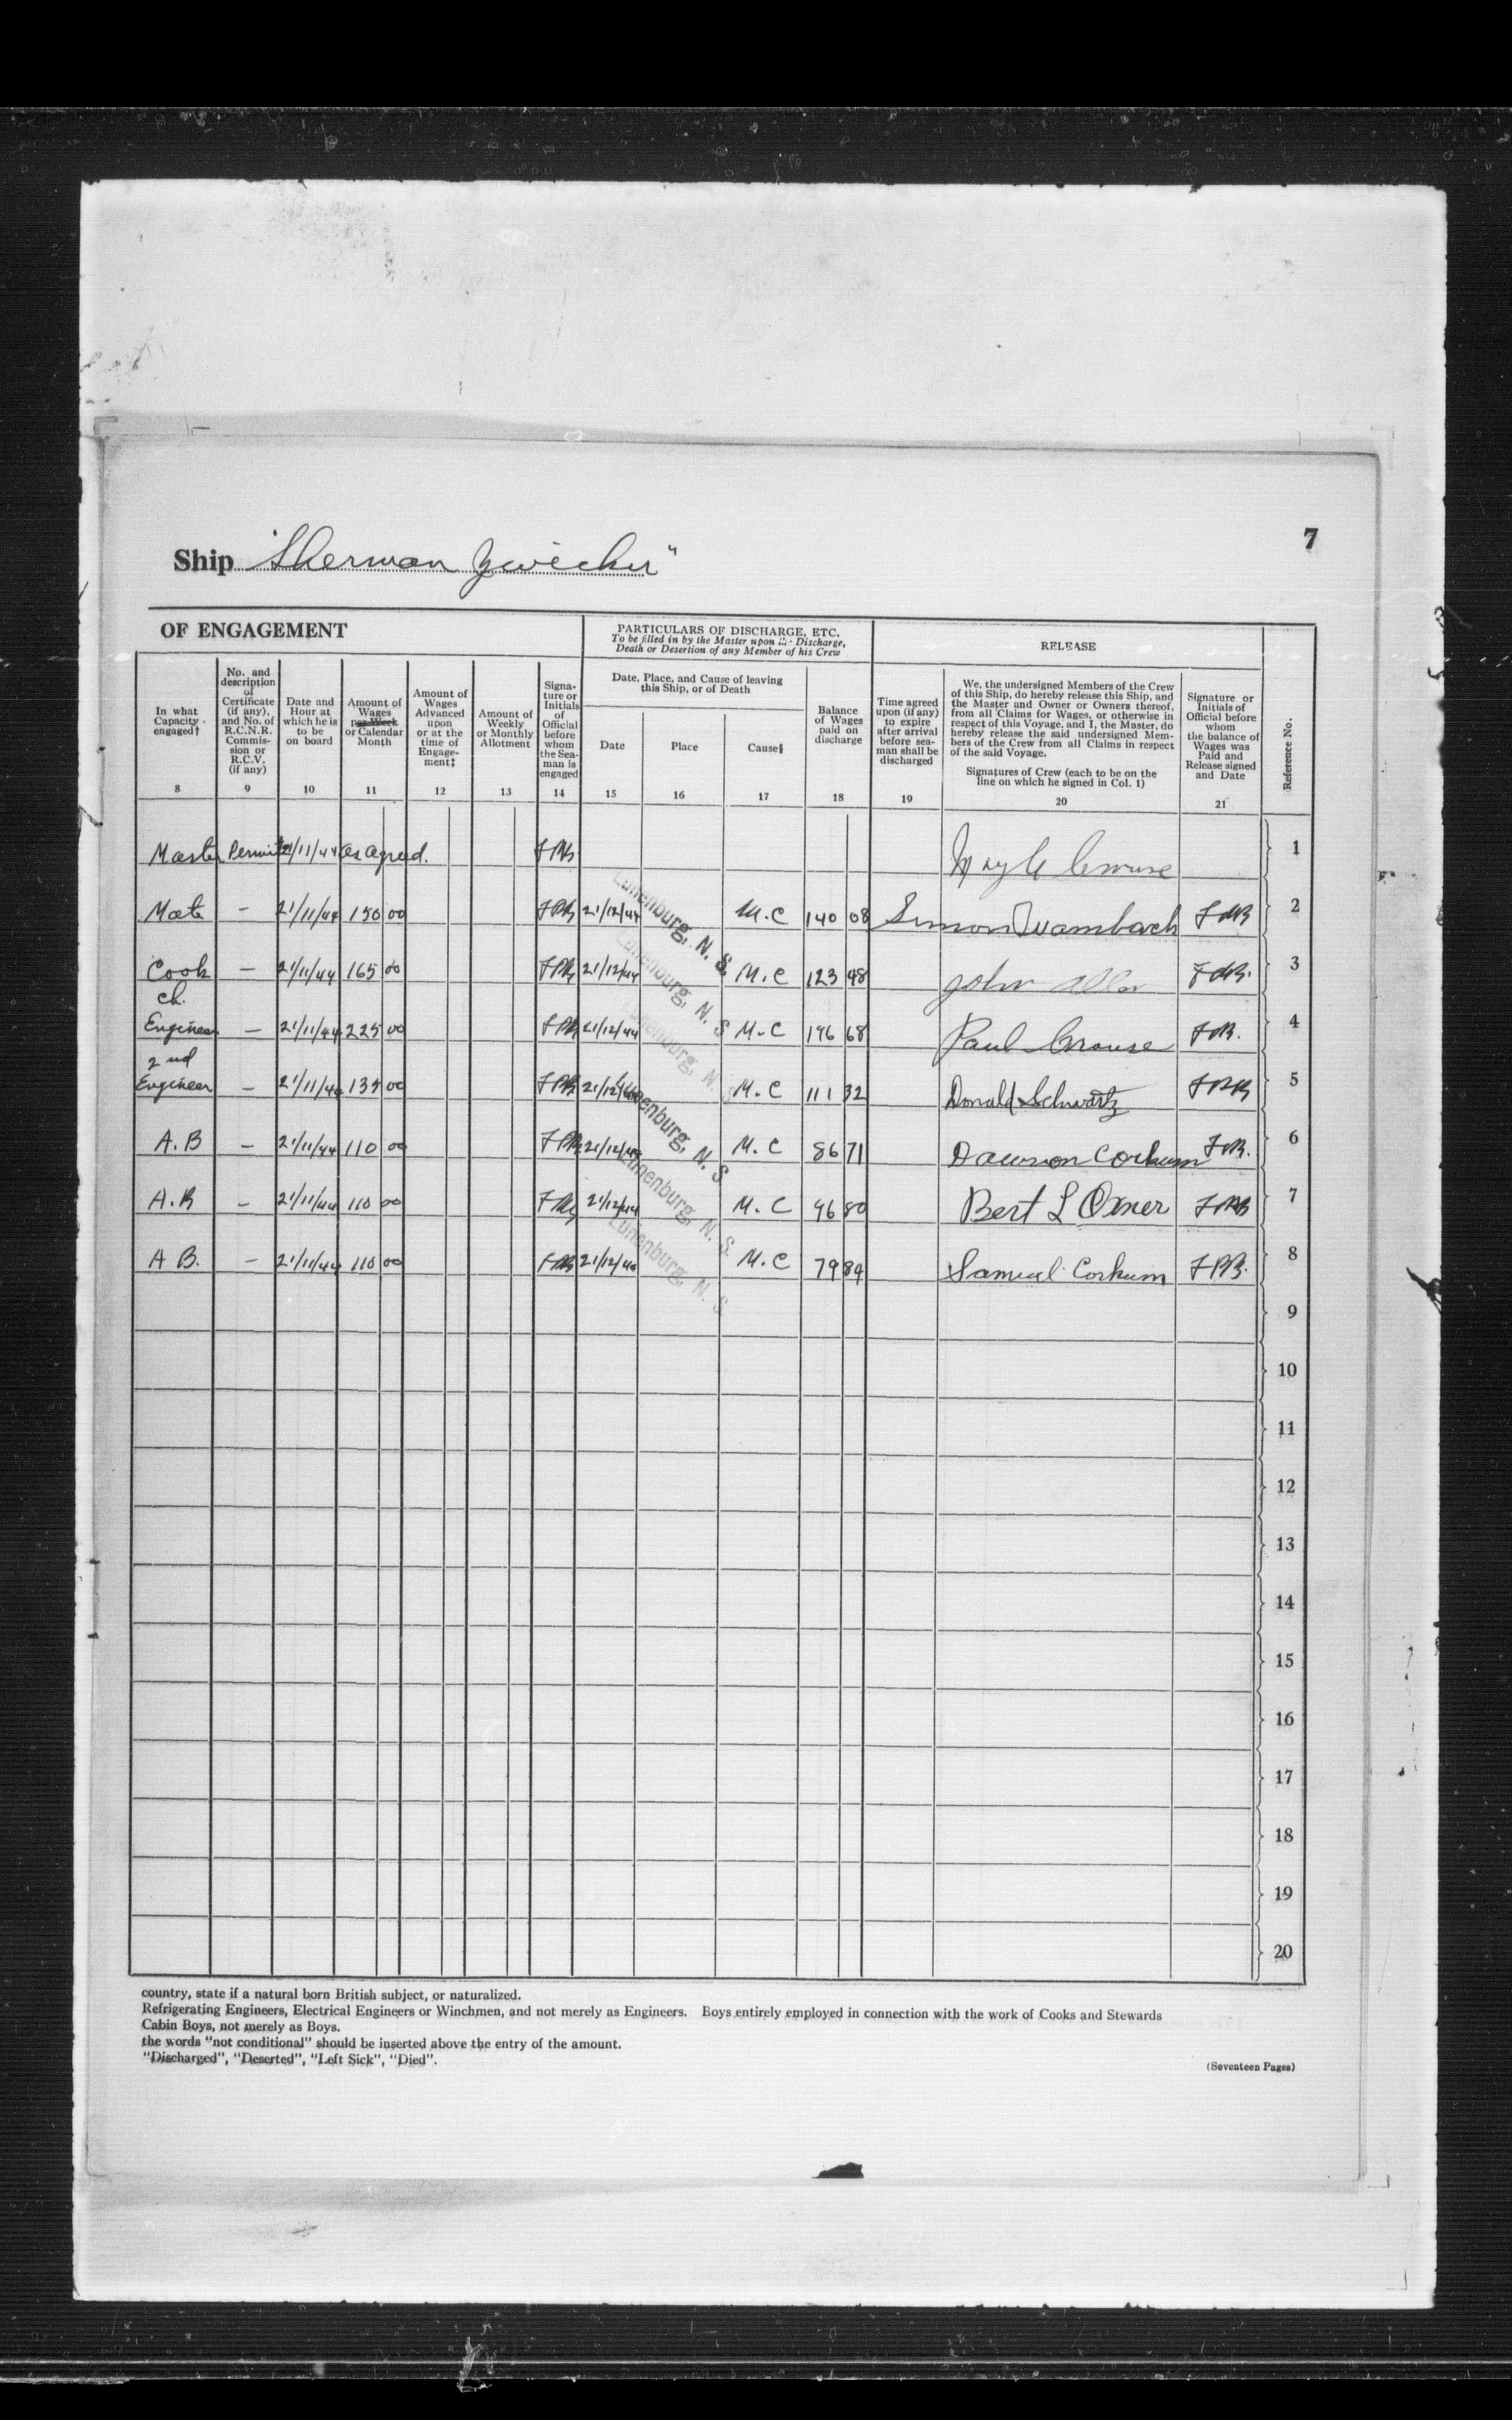 7
Ship "Sherman Zwicker"
OF ENGAGEMENT
PARTICULARS OF DISCHARGE, ETC.
To be filled in by the Master upon the Discharge,
Death or Desertion of any Member of his Crew
RELEASE
In what
Capacity
engaged†
8
No. and
description
of
Certificate
(if any),
and No. of
R.C.N.R.
Commis-
sion or
R.C.V.
(if any)
9
Date and
Hour at
which he is
to be
on board
10
Amount of
Wages
per Week
or Calendar
Month
11
Amount of
Wages
Advanced
upon
or at the
time of
Engage-
ment‡
12
Amount of
Weekly
or Monthly
Allotment
13
Signa-
ture or
Initials
of
Official
before
whom
the Sea-
man is
engaged
14
Date, Place, and Cause of leaving
this Ship, or of Death
Date
15
Place
16
Cause§
17
Balance
of Wages
paid on
discharge
18
Time agreed
upon (if any)
to expire
after arrival
before sea-
man shall be
discharged
19
We, the undersigned Members of the Crew
of this Ship, do hereby release this Ship, and
the Master and Owner or Owners thereof,
from all Claims for Wages, or otherwise in
respect of this Voyage, and I, the Master, do
hereby release the said undersigned Mem-
bers of the Crew from all Claims in respect
of the said Voyage.
Signatures of Crew (each to be on the
line on which he signed in Col. 1)
20
Signature or
Initials of
Official before
whom
the balance of
Wages was
Paid and
Release signed
and Date
21
Reference No.
Master Permit 21/11/44 as agreed. Crouse 1
Mate — 21/11/44 150 00 21/12/44 Lunenburg, N. S. M.C 140 08 Simon Wambach 2
Cook — 21/11/44 165 00 21/12/44 Lunenburg, N. S. M.C 123 48 John 3
Ch.
Engineer — 21/11/44 225 00 21/12/44 Lunenburg, N. M.C 196 68 Paul Crouse 4
2nd
Engineer — 21/11/44 135 00 21/12/44 Lunenburg, N. S. M.C 111 32 Donald Schwartz 5
A.B — 21/11/44 110 00 21/12/44 Lunenburg, N. S. M.C 86 71 Dawson Corkum 6
A.B — 21/11/44 110 00 21/12/44 Lunenburg, N. S. M.C 96 80 Bert L Oxner 7
A B. — 21/11/44 110 00 21/12/44 M.C 79 84 Samuel Corkum 8
9
10
11
12
13
14
15
16
17
18
19
20
country, state if a natural born British subject, or naturalized.
Refrigerating Engineers, Electrical Engineers or Winchmen, and not merely as Engineers. Boys entirely employed in connection with the work of Cooks and Stewards
Cabin Boys, not merely as Boys.
the words "not conditional" should be inserted above the entry of the amount.
"Discharged", "Deserted", "Left Sick", "Died".
(Seventeen Pages)